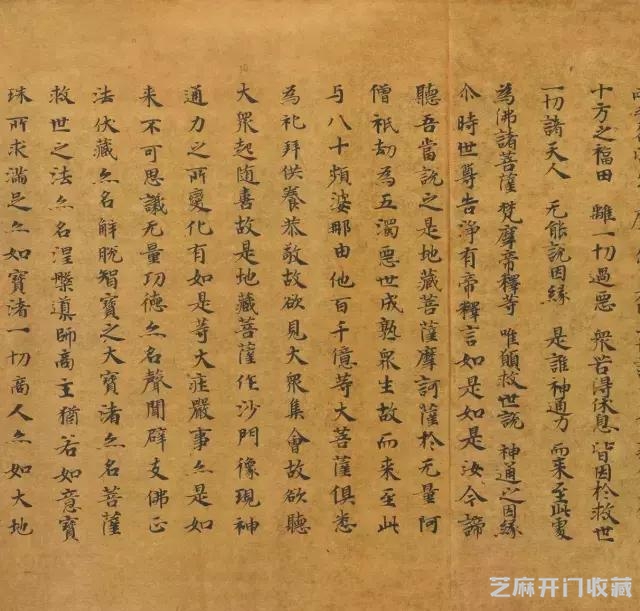 十方之福田 離一切過惡 眾苦得休息 皆因於救世
一切諸天人 无能說因緣 是誰神通力 而来至此處
為佛諸菩薩 梵摩帝釋等 唯願救世說 神通之因緣
尒時世尊告淨有帝釋言如是如是汝今諦
聽吾當說之是地藏菩薩摩訶薩於无量阿
僧祇劫為五濁惡世成熟眾生故而来至此
与八十頻婆那由他百千億等大菩薩俱悉
為礼拜供養恭敬故欲見大眾集會故欲聽
大眾起随喜故是地藏菩薩作沙門像現神
通力之所變化有如是等大莊嚴事亦是如
来不可思議无量功德亦名聲聞辟支佛正
法伏藏亦名解脫智寶之大寶渚亦名菩薩
救世之法亦名涅槃導師商主猶若如意寶
珠所求滿足亦如寶渚一切商人亦如大地
芝麻开门收藏